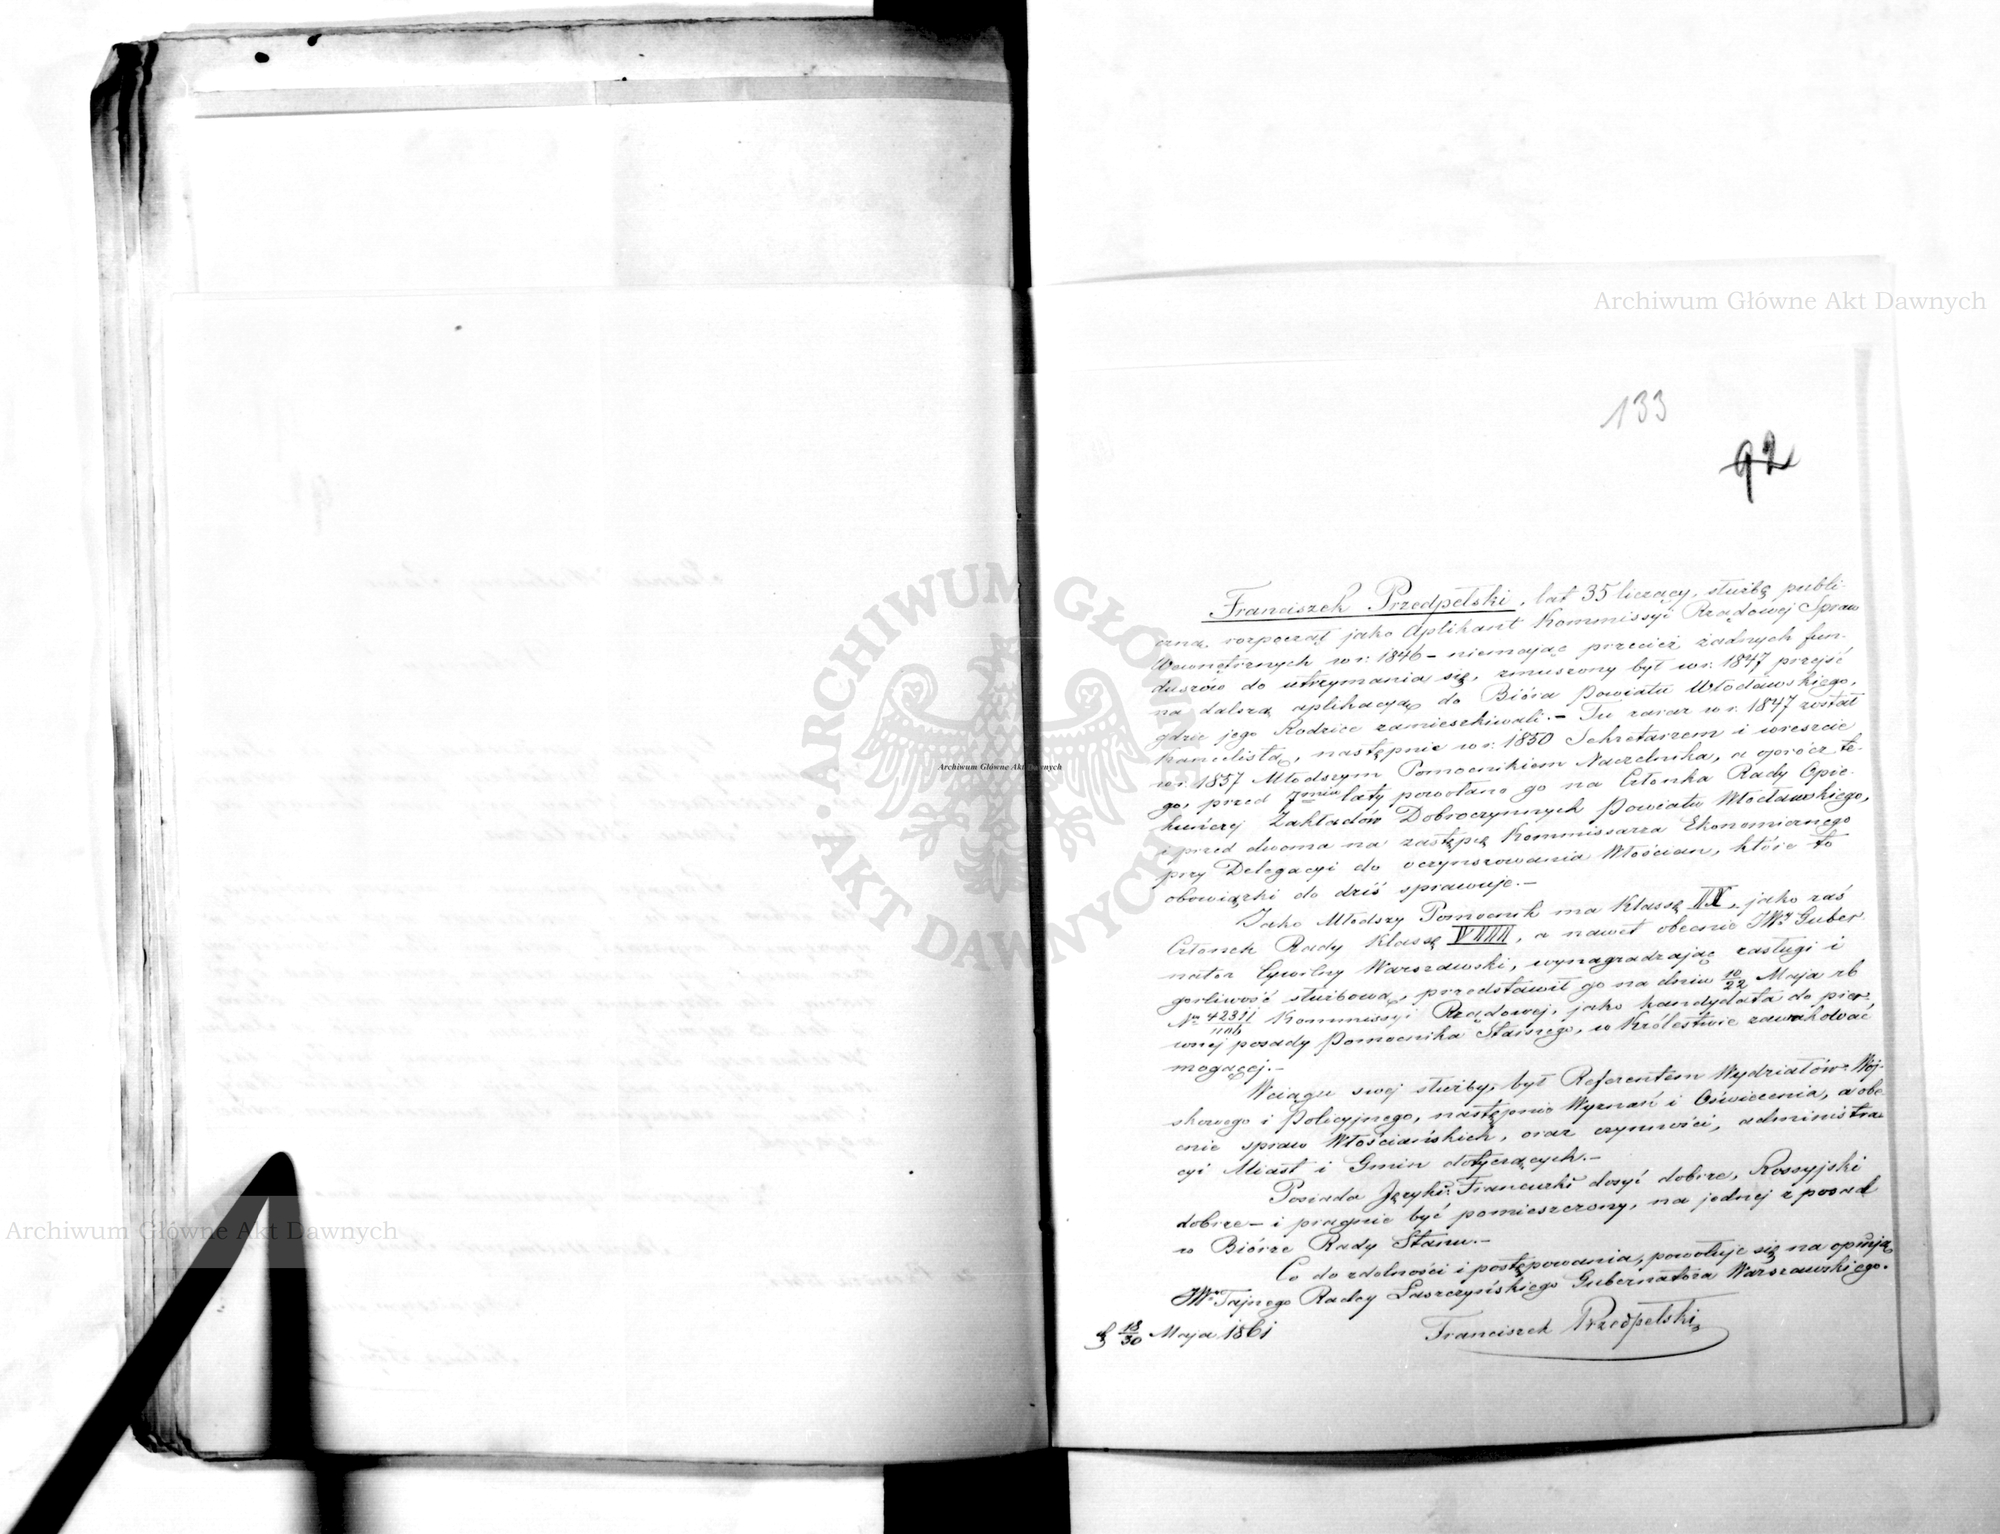 133
92
Franciszek Przedpełski, lat 35 liczący, służbę publi-
czną rozpoczął jako Aplikant Kommissyi Rządowej Spraw
Wewnętrznych w r. 1846 – niemając przecież żadnych fun-
duszów do utrzymania się, zmuszony był w r. 1847 przejść
na dalszą aplikacyą do Bióra Powiatu Włocławskiego,
gdzie jego Rodzice zamieszkiwali. – Tu zaraz w r. 1847 został
Kancelistą, następnie w r. 1850 Sekretarzem i wreszcie
w r. 1857 Młodszym Pomocnikiem Naczelnika, a oprócz te-
go, przed 7mia laty powołano go na Członka Rady Opie-
kuńczej Zakładów Dobroczynnych Powiatu Włocławskiego,
i przed dwoma na zastępcę Kommissarza Ekonomicznego
przy Delegacyi do oczynszowania Włościan, które to
obowiązki do dziś sprawuje. –
Jako Młodszy Pomocnik ma Klassę IX, jako zaś
Członek Rady Klassę VIII, a nawet obecnie JWy Guber-
nator Cywilny Warszawski, wynagradzając zasługi i
gorliwość służbową, przedstawił go na dniu 10/22 Maja rb
Nr 42311 Kommissyi Rządowej, jako kandydata do pier-
wszej posady Pomocnika Starszego, w Królestwie zawakować
mogącej. –
Wciągu swej służby, był Referentem Wydziałów: Woj-
skowego i Policyjnego, następnie Wyznań i Oświecenia, a obe-
cnie spraw Włościańskich, oraz czynności, administra-
cyi Miast i Gmin dotyczących. –
Posiada Języki: Francuzki dosyć dobrze, Rossyjski
dobrze – i pragnie być pomieszczony, na jednej z posad
w Biórze Rady Stanu. –
Co do zdolności i postępowania, powołuje się na opinją
JWo Tajnego Radcy Łaszczyńskiego Gubernatora Warszawskiego.
d 18/30 Maja 1861
Franciszek Przedpełski
Archiwum Główne Akt Dawnych
Archiwum Główne Akt Dawnych
Archiwum Główne Akt Dawnych
ARCHIWUM GŁÓWNE AKT DAWNYCH